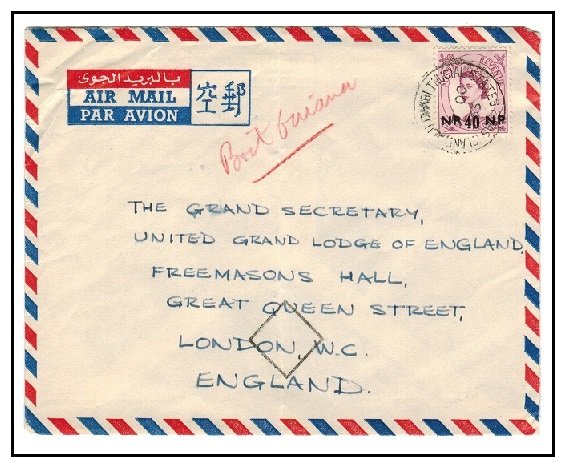 بالبريد الجوى
AIR MAIL
PAR AVION
空郵
Brit Guiana
NP 40 NP
THE GRAND SECRETARY,
UNITED GRAND LODGE OF ENGLAND,
FREEMASONS HALL,
GREAT QUEEN STREET,
LONDON, W.C.
ENGLAND.